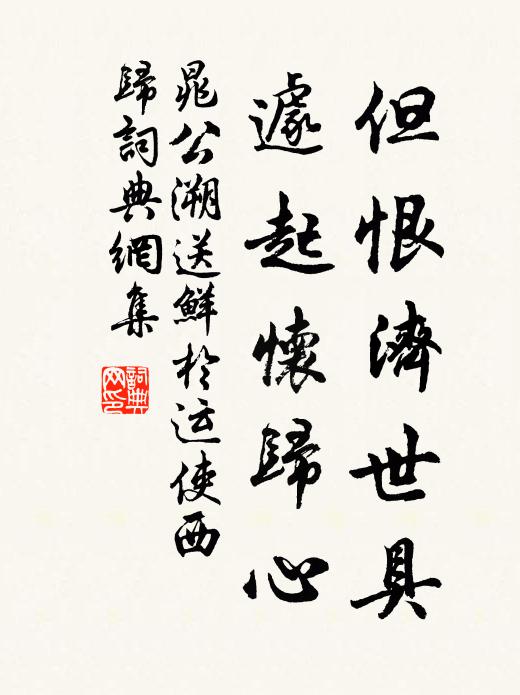 但恨濟世具
遽起懷歸心
晁公溯送鮮於运使西
歸詞典網集
詞典
网印